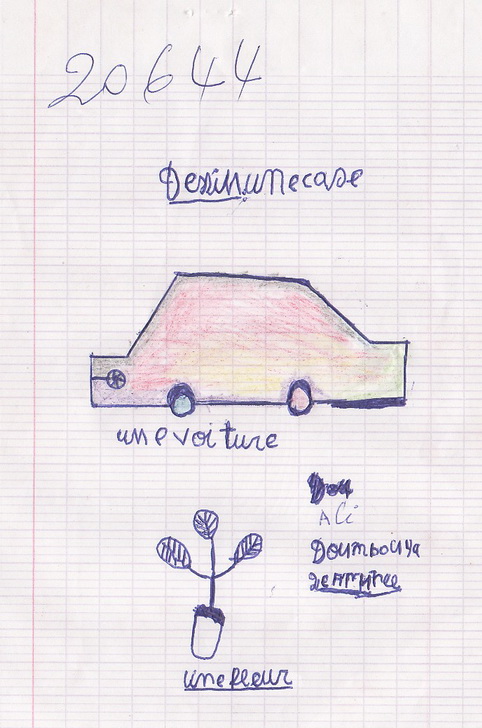 20644
Dessin.unecase
une voiture
Ali
Doumbouya
2em
une fleur